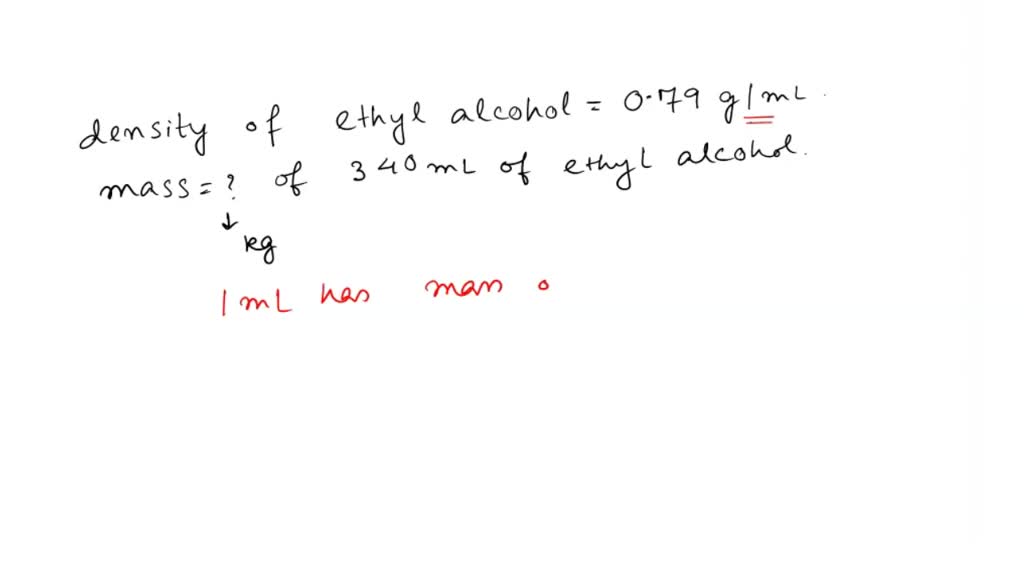 density of ethyl alcohol = 0.79 g/mL.
mass = ? of 340 mL of ethyl alcohol.
↓
kg
1 mL has mass o